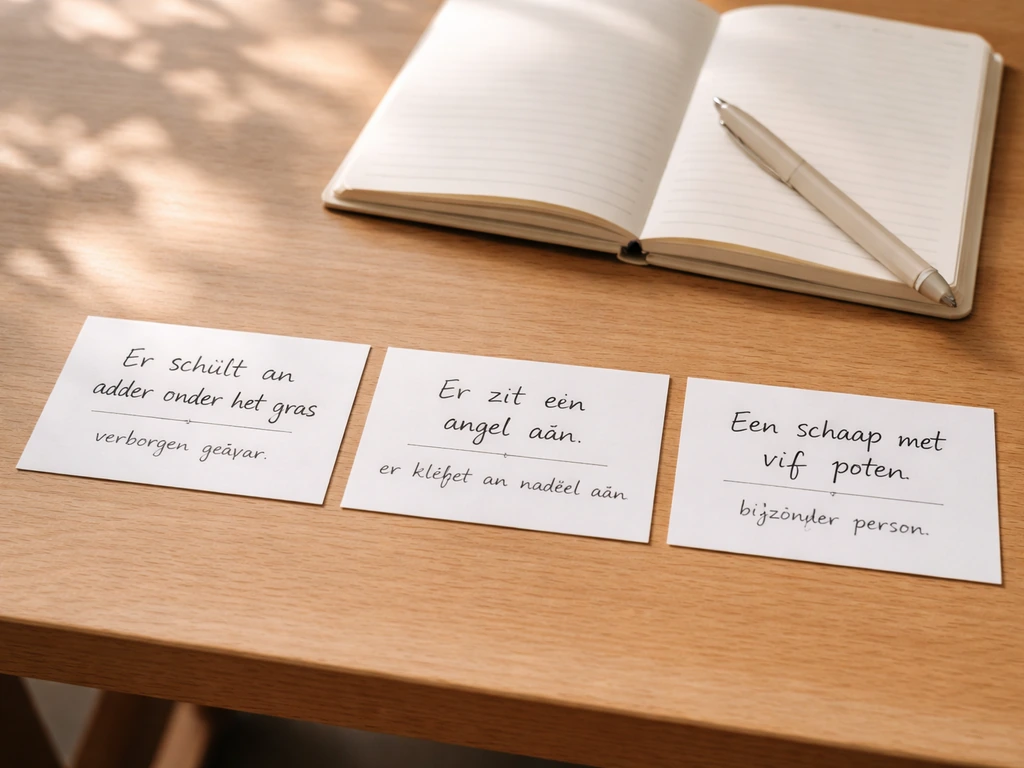 Er schüilt an
adder onder het gras
verborgen geāvar.
Er zit eėn
angel aān.
er kléfjet an nadëel aān
Een schaap met
vif poten.
bijzonder person.